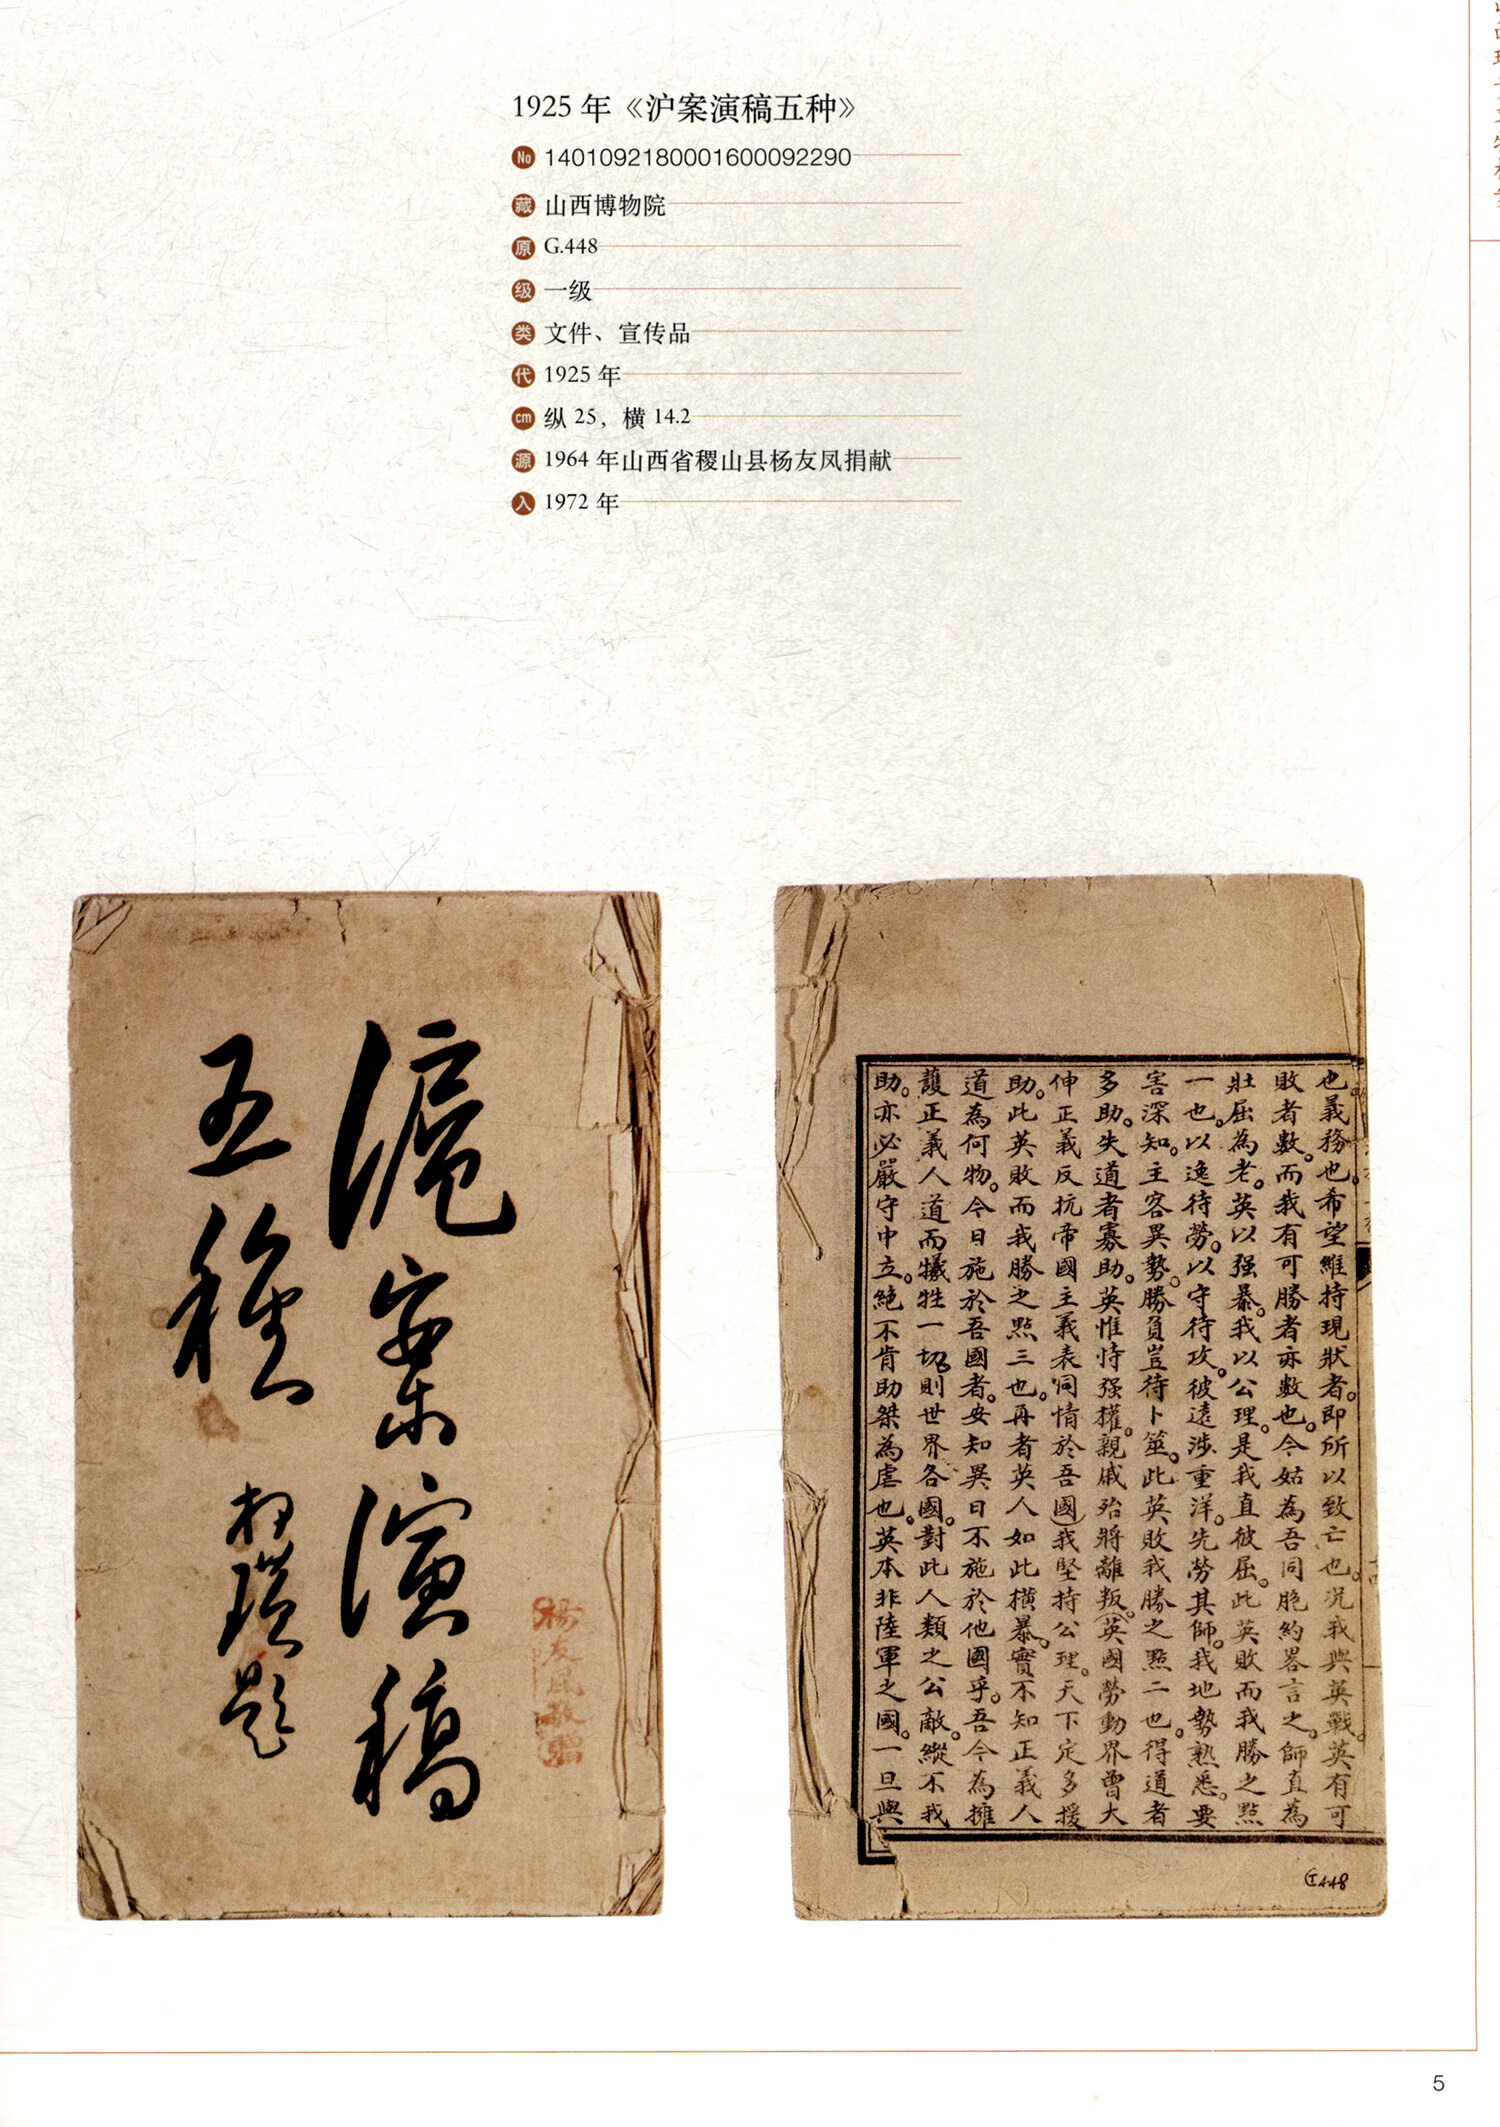 1925 年《沪案演稿五种》
No 1401092180001600092290
藏 山西博物院
原 G.448
级 一级
类 文件、宣传品
代 1925 年
cm 纵 25，横 14.2
源 1964 年山西省稷山县杨友凤捐献
入 1972 年
滬案演稿
五種
題
楊友凤敬贈
也。義務也。希望維持現狀者。即所以致亡也。況我與英戰。英有可
敗者數。而我有可勝者亦數也。今姑為吾同胞約畧言之。師直為
壯屈為老。英以强暴。我以公理。是我直彼屈。此英敗而我勝之點
一也。以逸待勞。以守待攻。彼遠涉重洋。先勞其師。我地勢熟悉。要
害深知。主客異勢。勝負豈待卜筮。此英敗我勝之點二也。得道者
多助。失道者寡助。英惟恃强權。親戚殆將離叛。(英國勞動界曾大
伸正義反抗帝國主義表同情於吾國)我堅持公理。天下定多援
助。此英敗而我勝之點三也。再者英人如此横暴。實不知正義人
道為何物。今日施於吾國者。安知異日不施於他國乎。吾今為擁
護正義人道而犧牲一切。則世界各國。對此人類之公敵。縱不我
助。亦必嚴守中立。絕不肯助桀為虐也。英本非陸軍之國。一旦與
G448
5